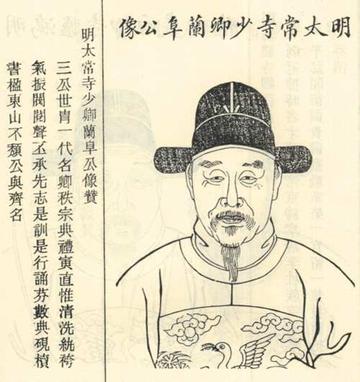 明太常寺少卿蘭阜公像
明太常寺少卿蘭阜公像贊
三公世胄一代名卿秩宗典禮寅直惟清洗統袴
氣振閥閱聲丕承先志是訓是行誦芬數典硯橨
書楹東山不類公與齊名